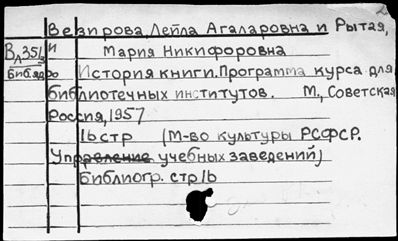 Везирова, Лейла Агаларовна и Рытая,
Мария Никифоровна
Вл35/3 и
Биб.ядро
История книги. Программа курса для
библиотечных институтов. М., Советская
Россия, 1957
16 стр (М-во культуры РСФСР.
Управление учебных заведений)
Библиогр. стр 16